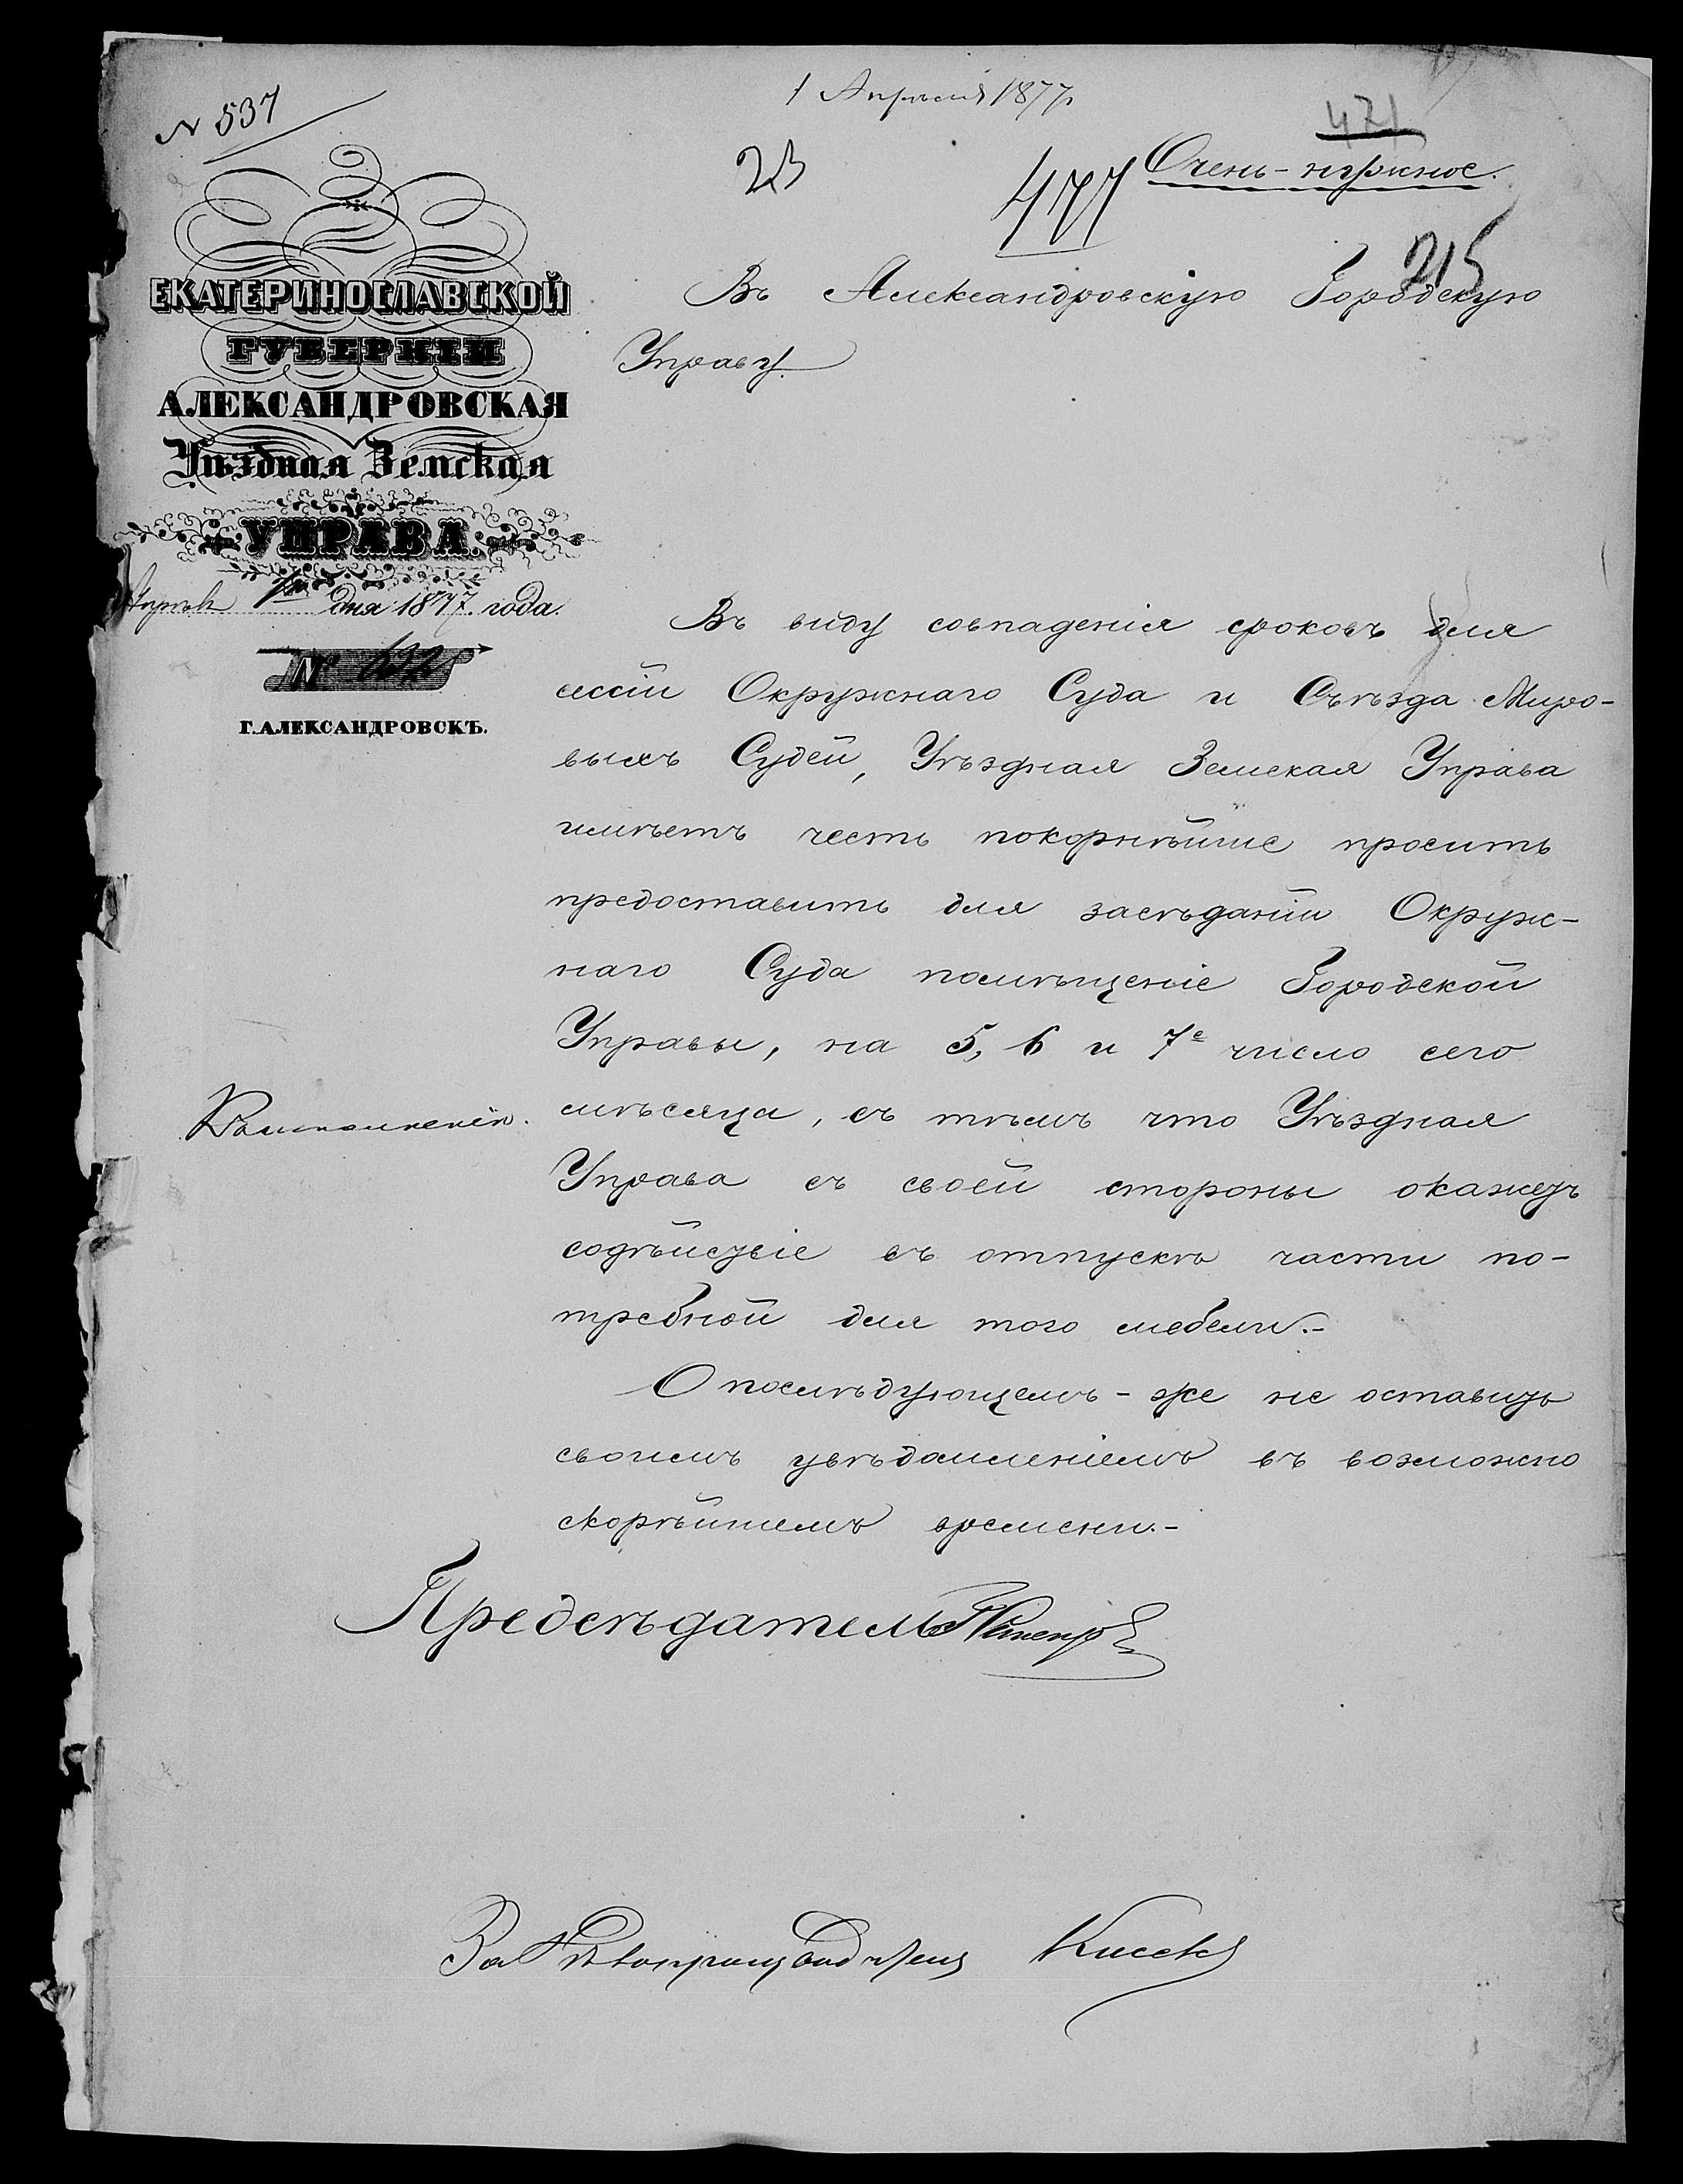 1 Апрѣля 1877
N 537
471
23
477
Очень-нужное.
215
ЕКАТЕРИНОСЛАВСКОЙ
ГУБЕРНІИ
АЛЕКСАНДРОВСКАЯ
Уѣздная Земская
УПРАВА.
дня 1877. года.
№ 632
Г. АЛЕКСАНДРОВСКЪ.
Въ Александровскую Городскую
Управу.
Въ виду совпаденія сроковъ для
сессіи Окружнаго Суда и Съѣзда Миро-
выхъ Судей, Уѣздная Земская Управа
имѣетъ честь покорнѣйше просить
предоставить для засѣданій Окруж-
наго Суда помѣщеніе Городской
Управы, на 5, 6 и 7е число сего
мѣсяца, съ тѣмъ что Уѣздная
Управа съ своей стороны окажетъ
содѣйствіе въ отпускѣ части по-
требной для того мебели.-
О послѣдующемъ-же не оставить
своимъ увѣдомленіемъ въ возможно
скорѣйшемъ времени.-
Предсѣдатель